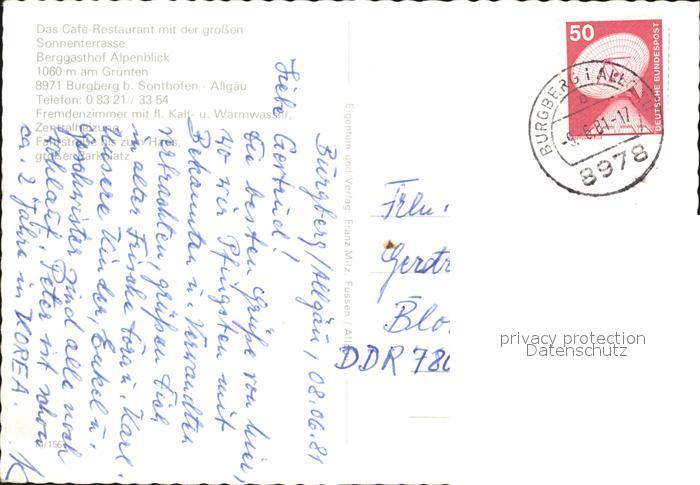 Das Café-Restaurant mit der großen
Sonnenterrasse
Berggasthof Alpenblick
1060 m am Grünten
8971 Burgberg b. Sonthofen - Allgäu
Telefon: 0 83 21 / 33 54
Fremdenzimmer mit fl. Kalt- u. Warmwasser,
Zentralheizung
Fahrstraße bis zum Haus,
großer Parkplatz
Burgberg/Allgäu, 08.06.81
Liebe Gertrud!
Die besten Grüße von hier,
wo wir Pfingsten mit
Bekannten u. Verwandten
verbrachten, grüßen Dich
in alter Frische Erna u. Karl.
Unsere Kinder, Enkel u.
Geschwister sind alle noch
wohlauf. Peter ist schon
ca. 2 Jahre in KOREA.
Eigentum und Verlag Franz Milz, Füssen / Allg
50
DEUTSCHE BUNDESPOST
BURGBERG i ALLG
-9.-6.81-17
8978
Frln.
Gertr
Blo
DDR 780
privacy protection
Datenschutz